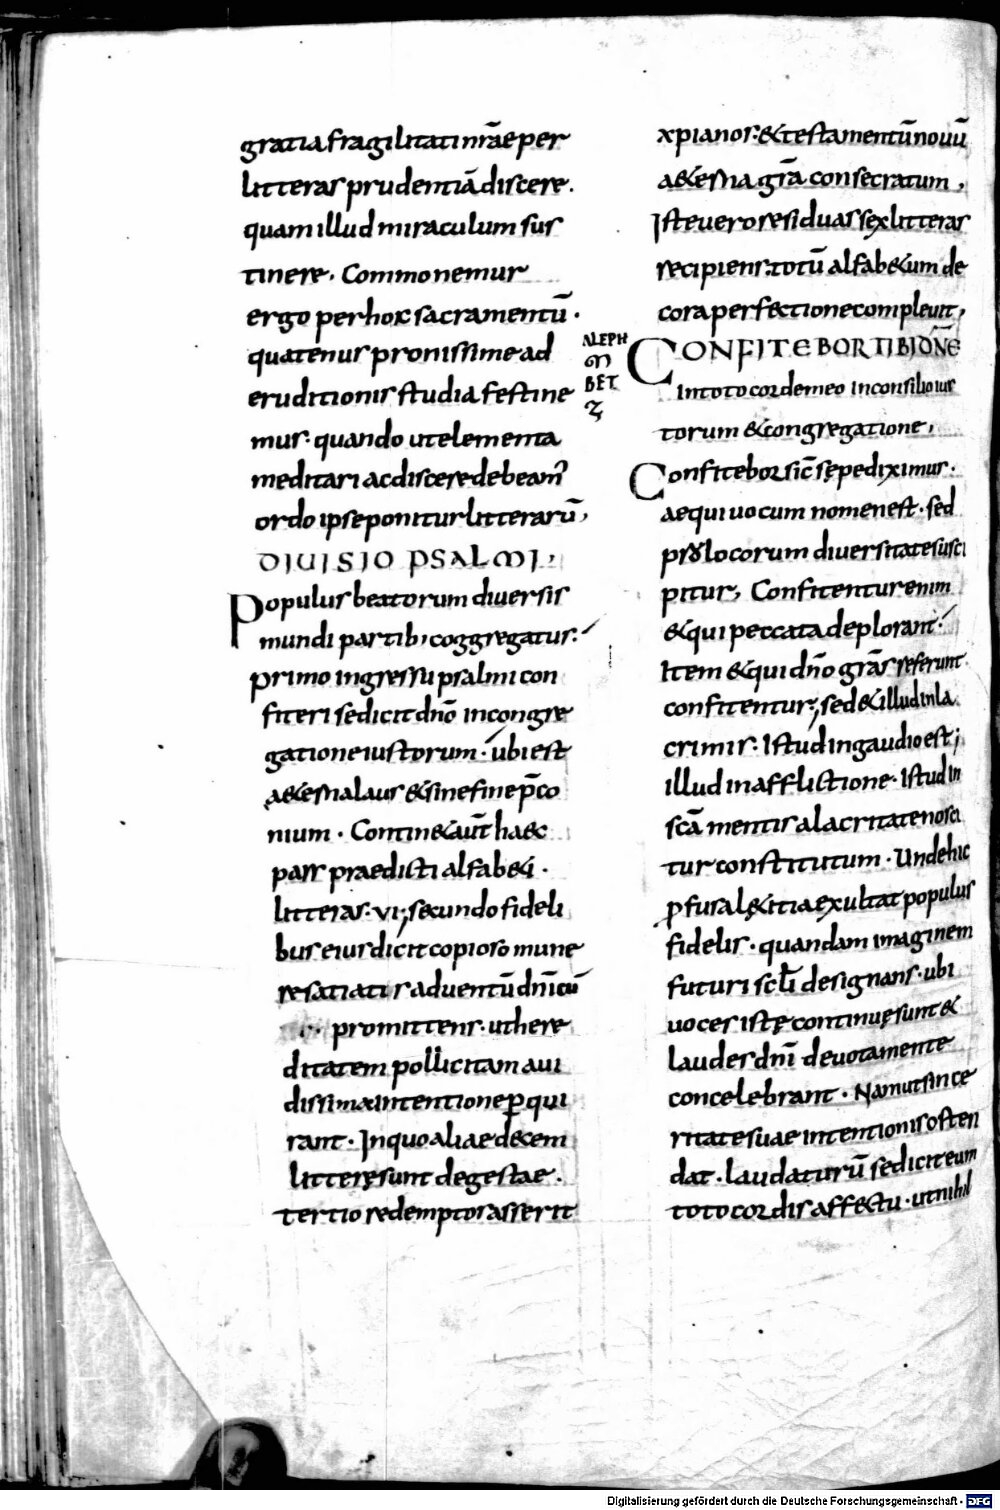 gratia fragilitati nr̄ae per
litteras prudentiā discere.
quam illud miraculum sus
tinere. Commonemur
ergo per hoc sacramentū.
quatenus pronissime ad
eruditionis studia festine
mur. quando ut elementa
meditari ac discere debeam̄
ordo ipse ponitur litterarū,
DIUISIO PSALMI,
Populus beatorum diuersis
mundi partib; coggregatus.
primo ingressu psalmi con
fiteri se dicit dn̄o in congre
gatione iustorum. ubi est
aeterna laus & sine fine p̄co
nium. Contin& aut̄ haec
pars praedicti alfab&i.
litteras. vi; secundo fideli
bus eius dicit copioso mune
re satiatis aduentū dn̄icū
promittens. ut here
ditatem pollicitam aui
dissima intentione perqui
rant. In quo aliae decem
litterę sunt degestae.
tertio redemptor asserit
xp̄ianos. & testamentū nouū
a&erna gr̄a consecratum,
Iste uero residuas sex litteras
recipiens. totū alfab&um de
cora perfectione compleuit,
ALEPH
BET
CONFITEBOR TIBI DN̄E
In toto corde meo in consilio ius
torum & congregatione,
Confitebor sic̄ sępe diximus.
aequiuocum nomen est. sed
pro locorum diuersitate susci
pitur, Confitentur enim
& qui peccata deplorant.
Item & qui dn̄o grās referunt
confitentur; sed & illud in la
crimis. Istud in gaudio est;
illud in afflictione. Istud in
scā mentis alacritate nosci
tur constitutum. Unde hic
p̱fusa l&itia exultat populus
fidelis. quandam imaginem
futuri scl̄i designans. ubi
uoces istę continuę sunt &
laudes dn̄i deuotamente
concelebrant. Nam ut since
ritate suae intentionis osten
dat. laudaturū se dicit eum
toto cordis affectu. ut nihil
Digitalisierung gefördert durch die Deutsche Forschungsgemeinschaft - DFG